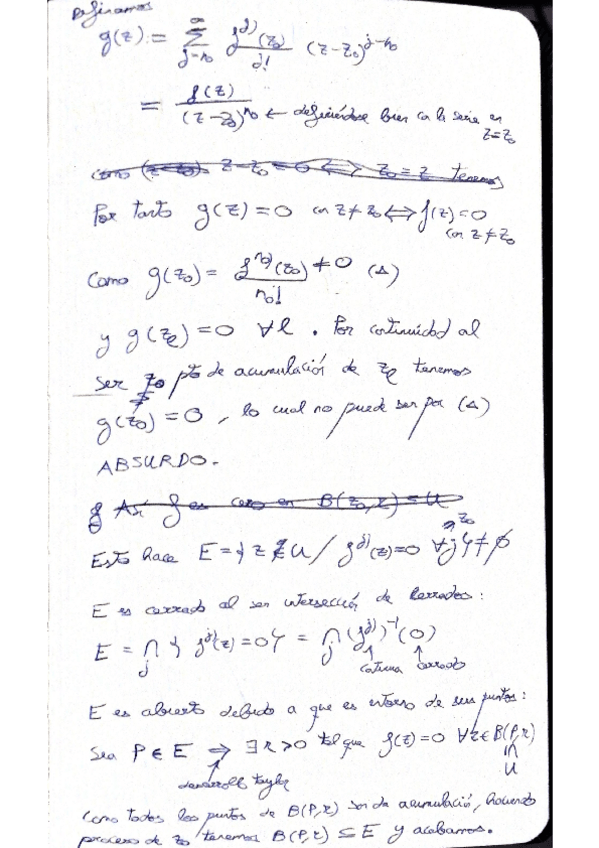 Definamos
g(z) := ∑_{j=n₀}^{∞} f^{j)}(z₀)/j! (z-z₀)^{j-n₀}
= f(z)/(z-z₀)^{n₀} ← definiéndose bien con la serie en z=z₀
como (z-z₀) z-z₀=0 ⟺ z₀=z tenemos
Por tanto g(z)=0 con z≠z₀ ⟺ f(z)=0 con z≠z₀
Como g(z₀) = f^{n₀)}(z₀)/n₀! ≠ 0 (△)
y g(z_ℓ)=0 ∀ℓ. Por continuidad al
ser z₀ pto de acumulación de z_ℓ tenemos
g(z₀)=0, lo cual no puede ser por (△)
ABSURDO.
Así f es cero en B(z₀,r) ⊆ U
Esto hace E={z ∈ U / f^{j)}(z)=0 ∀j} ≠ ∅
z₀
E es cerrado al ser intersección de cerrados:
E = ⋂_j { f^{j)}(z)=0} = ⋂_j (f^{j)})^{-1}(0)
continua cerrado
E es abierto debido a que es entorno de sus puntos:
Sea P∈E ⇒ ∃r>0 tal que f(z)=0 ∀z∈B(P,r)
∩
U
desarrollo taylor
Como todos los puntos de B(P,r) son de acumulación, haciendo
proceso de z₀ tenemos B(P,r) ⊆ E y acabamos.